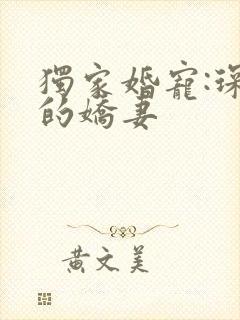 獨家婚寵:琛
的嬌妻
黃文美